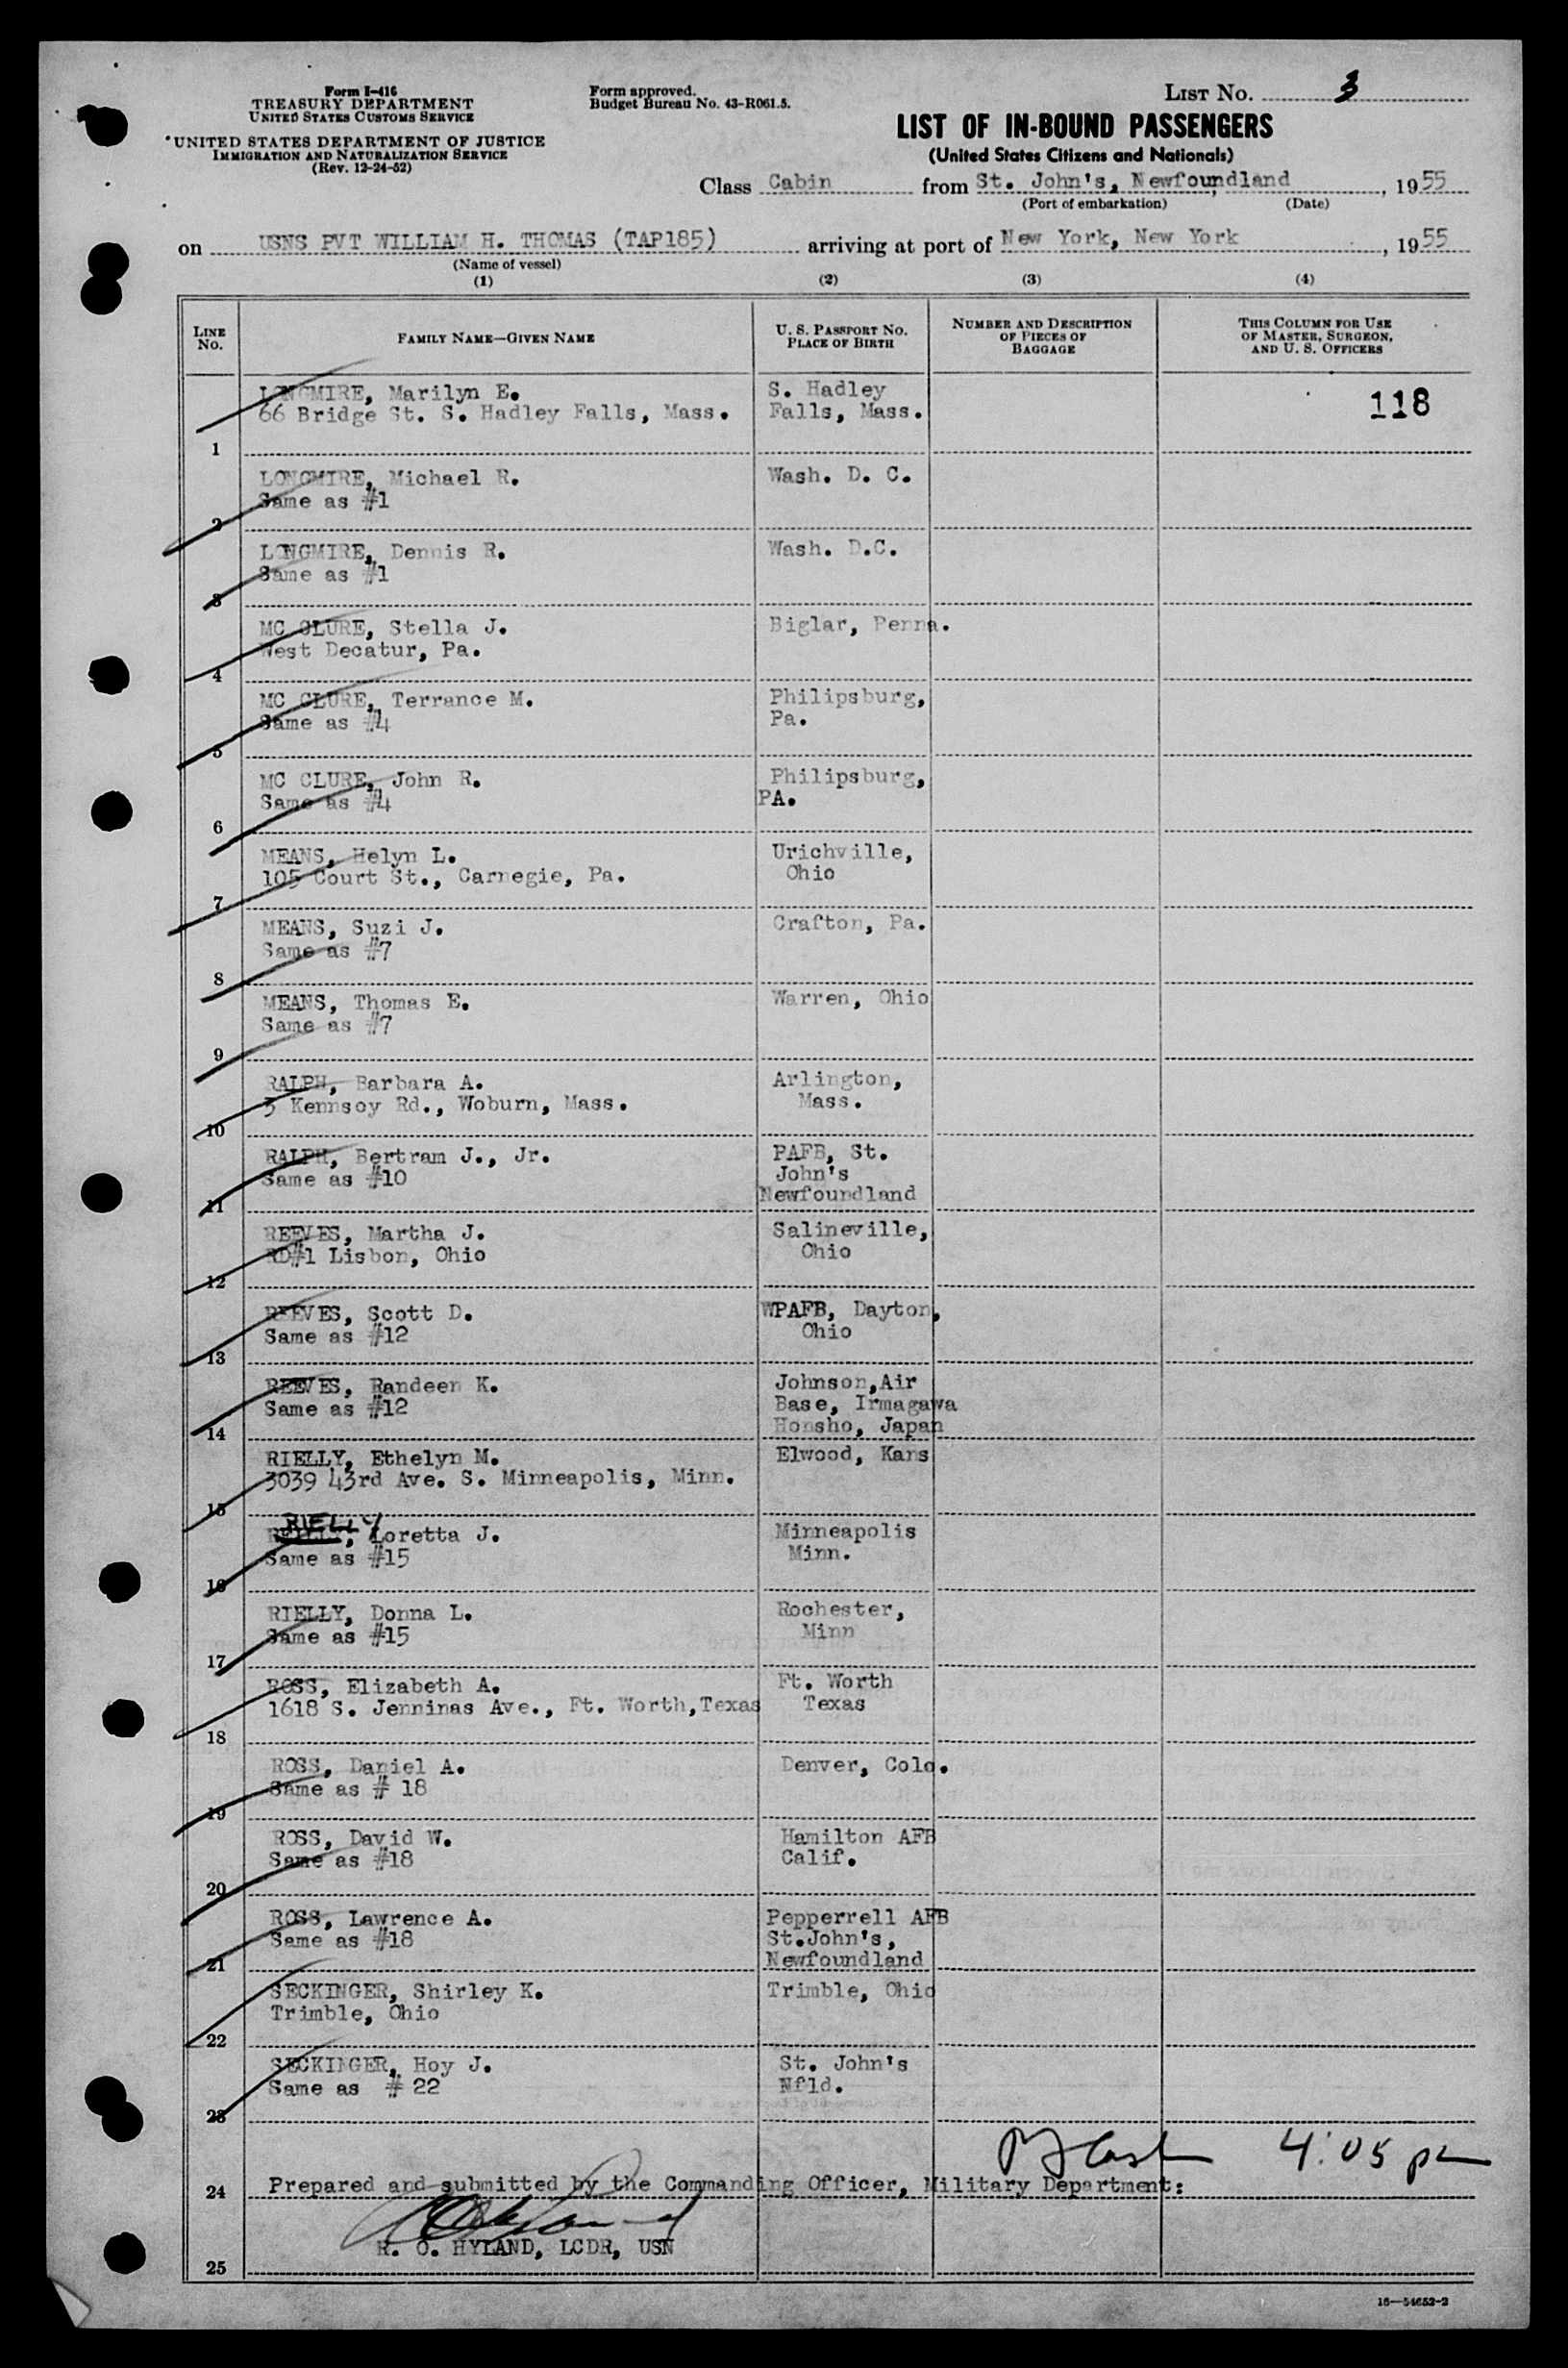 Form I-416
TREASURY DEPARTMENT
UNITED STATES CUSTOMS SERVICE
UNITED STATES DEPARTMENT OF JUSTICE
IMMIGRATION AND NATURALIZATION SERVICE
(Rev. 12-24-52)
Form approved.
Budget Bureau No. 43-R061.5.
LIST No. 3
LIST OF IN-BOUND PASSENGERS
(United States Citizens and Nationals)
Class Cabin from St. John's, Newfoundland, 1955
(Port of embarkation) (Date)
on USNS PVT WILLIAM H. THOMAS (TAP185) arriving at port of New York, New York, 1955
(Name of vessel)
(1) (2) (3) (4)
LINE No.
FAMILY NAME—GIVEN NAME
U. S. PASSPORT No.
PLACE OF BIRTH
NUMBER AND DESCRIPTION
OF PIECES OF
BAGGAGE
THIS COLUMN FOR USE
OF MASTER, SURGEON,
AND U. S. OFFICERS
LONGMIRE, Marilyn E. S. Hadley
66 Bridge St. S. Hadley Falls, Mass. Falls, Mass. 118
1
LONGMIRE, Michael R. Wash. D. C.
Same as #1
2
LONGMIRE, Dennis R. Wash. D.C.
Same as #1
3
MC CLURE, Stella J. Biglar, Penna.
West Decatur, Pa.
4
MC CLURE, Terrance M. Philipsburg,
Same as #4 Pa.
5
MC CLURE, John R. Philipsburg,
Same as #4 PA.
6
MEANS, Helyn L. Urichville,
105 Court St., Carnegie, Pa. Ohio
7
MEANS, Suzi J. Crafton, Pa.
Same as #7
8
MEANS, Thomas E. Warren, Ohio
Same as #7
9
RALPH, Barbara A. Arlington,
3 Kennsoy Rd., Woburn, Mass. Mass.
10
RALPH, Bertram J., Jr. PAFB, St.
Same as #10 John's
Newfoundland
11
REEVES, Martha J. Salineville,
RD#1 Lisbon, Ohio Ohio
12
REEVES, Scott D. WPAFB, Dayton,
Same as #12 Ohio
13
REEVES, Randeen K. Johnson,Air
Same as #12 Base, Irmagawa
Honsho, Japan
14
RIELLY, Ethelyn M. Elwood, Kans
3039 43rd Ave. S. Minneapolis, Minn.
15
RIELLY
, Loretta J. Minneapolis
Same as #15 Minn.
16
RIELLY, Donna L. Rochester,
Same as #15 Minn
17
ROSS, Elizabeth A. Ft. Worth
1618 S. Jenninas Ave., Ft. Worth,Texas Texas
18
ROSS, Daniel A. Denver, Colo.
Same as # 18
19
ROSS, David W. Hamilton AFB
Same as #18 Calif.
20
ROSS, Lawrence A. Pepperrell AFB
Same as #18 St.John's,
Newfoundland
21
SECKINGER, Shirley K. Trimble, Ohio
Trimble, Ohio
22
SECKINGER, Hoy J. St. John's
Same as # 22 Nfld.
23
4:05 pm
Prepared and submitted by the Commanding Officer, Military Department:
24
R. O. HYLAND, LCDR, USN
25
16—54652-2